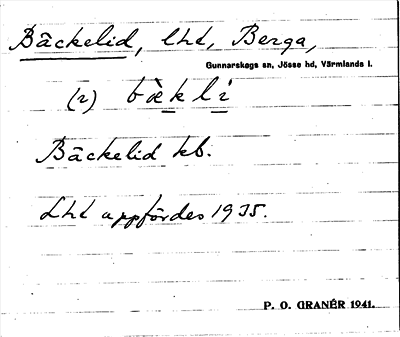 Bäckelid, lht, Berga,
Gunnarskogs sn, Jösse hd, Värmlands l.
(2) bæ̀kli
Bäckelid kb.
Lht uppfördes 1935.
P. O. GRANÉR 1941.